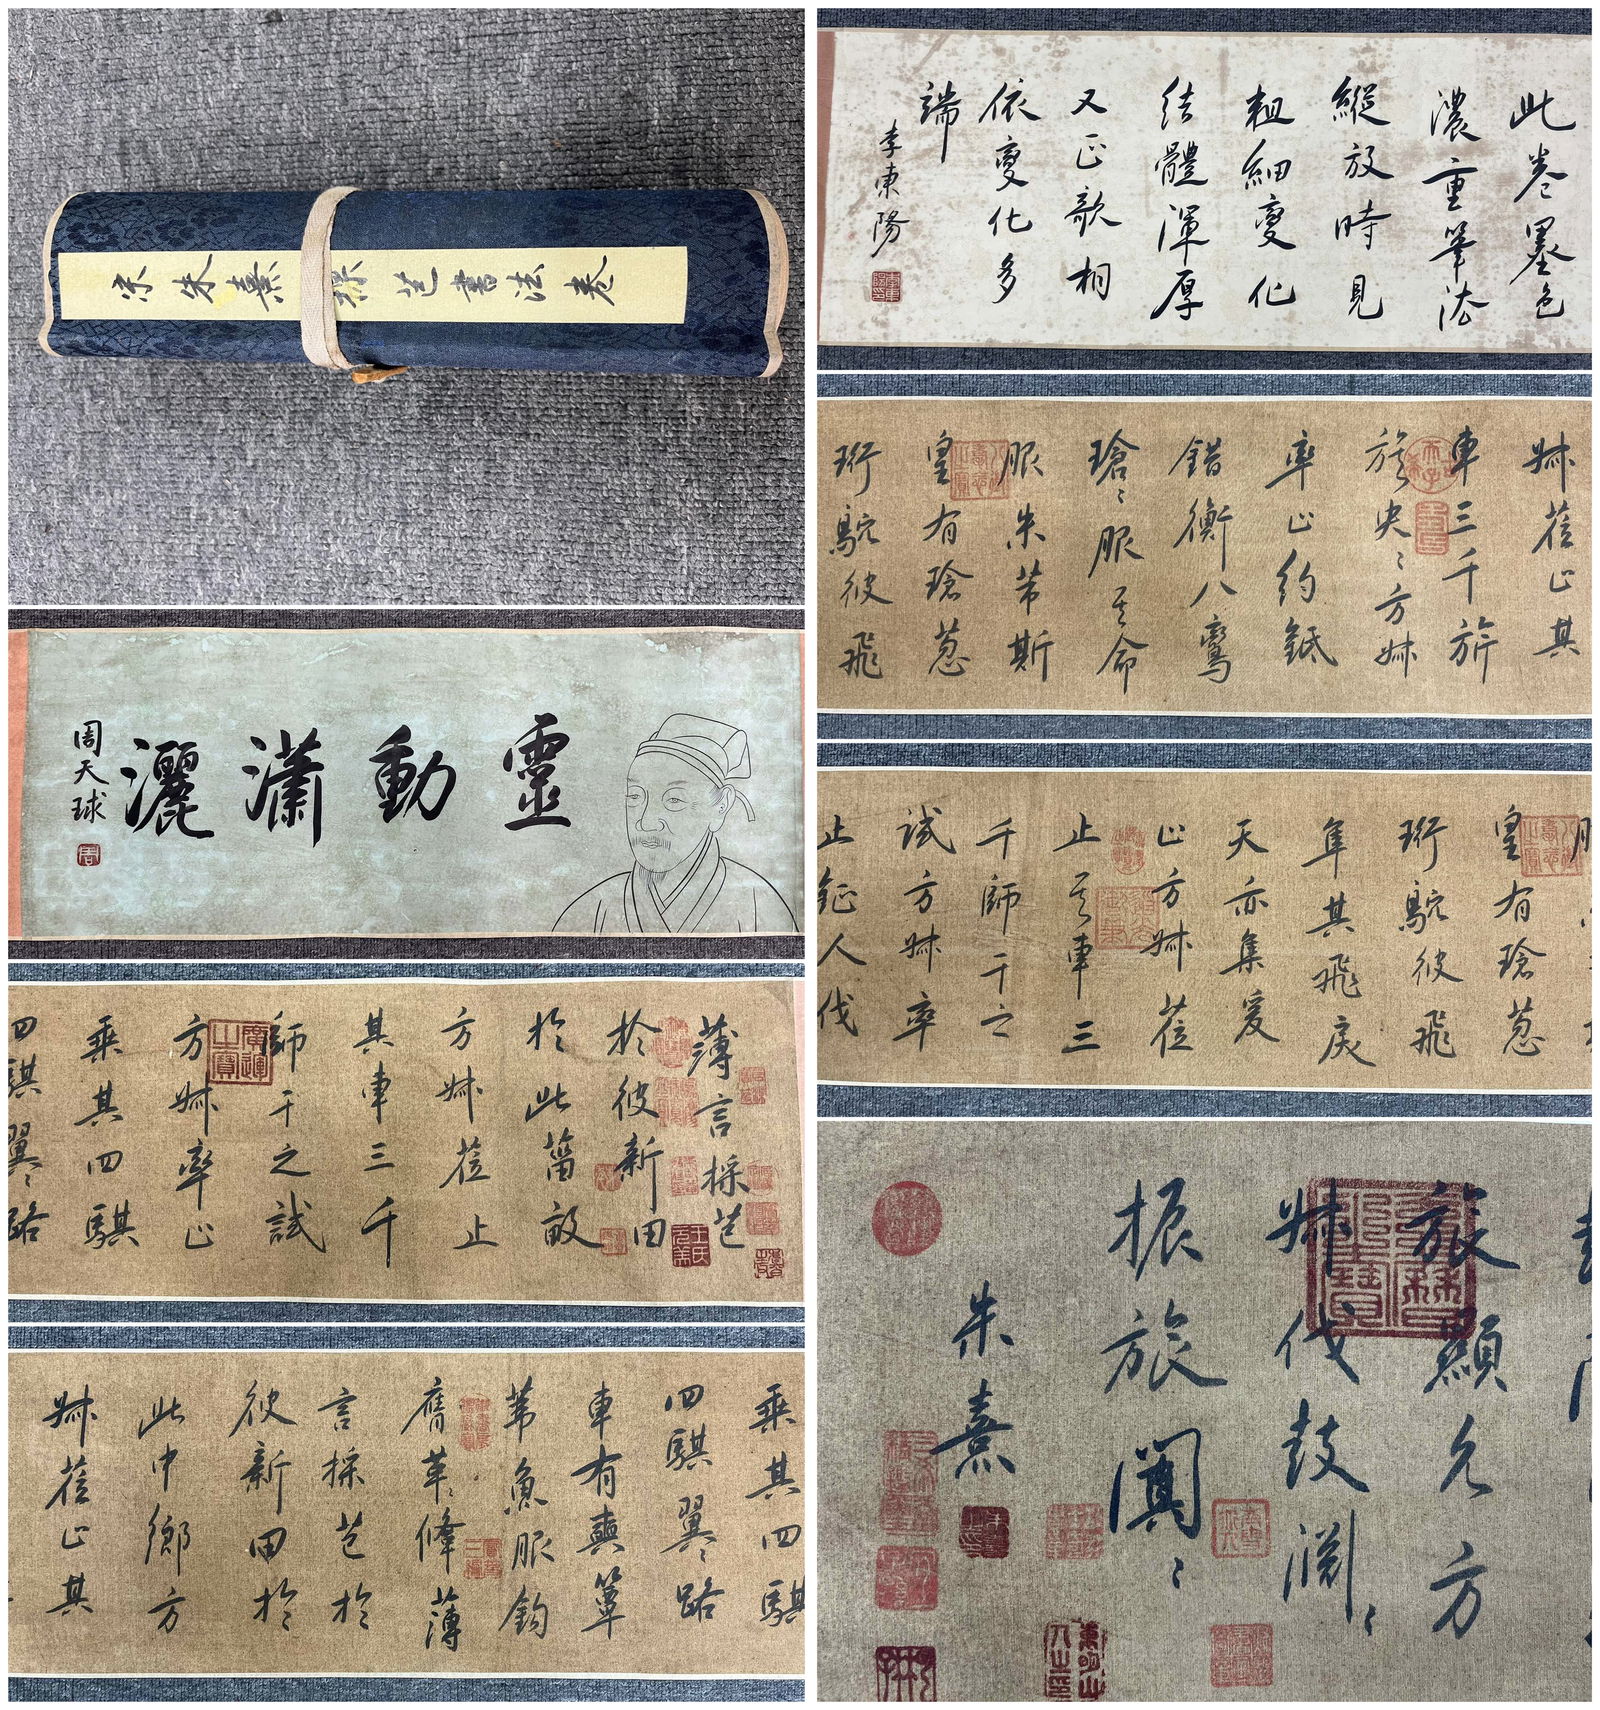 宋朱熹採芑書法卷
靈動瀟灑
周天球
薄言採芑
於彼新田
於此菑畝
方叔蒞止
其車三千
師干之試
方叔率止
乘其四騏
四騏翼〻路
乘其四騏
四騏翼〻路
車有奭簟
茀魚服鉤
膺革〻鞗薄
言採芑於
彼新田於
此中鄉方
叔蒞止其
此卷墨色
濃重筆法
縱放時見
粗細變化
結體渾厚
又正欹相
依變化多
端
李東陽
叔蒞止其
車三千旂
旐央〻方叔
率止約軝
錯衡八鸞
瑲〻服其命
服朱芾斯
皇有瑲蔥
珩鴥彼飛
皇有瑲蔥
珩鴥彼飛
隼其飛戾
天亦集爰
止方叔蒞
止其車三
千師干之
試方叔率
止鉦人伐
旅顯允方
叔伐鼓淵〻
振旅闐〻
朱熹